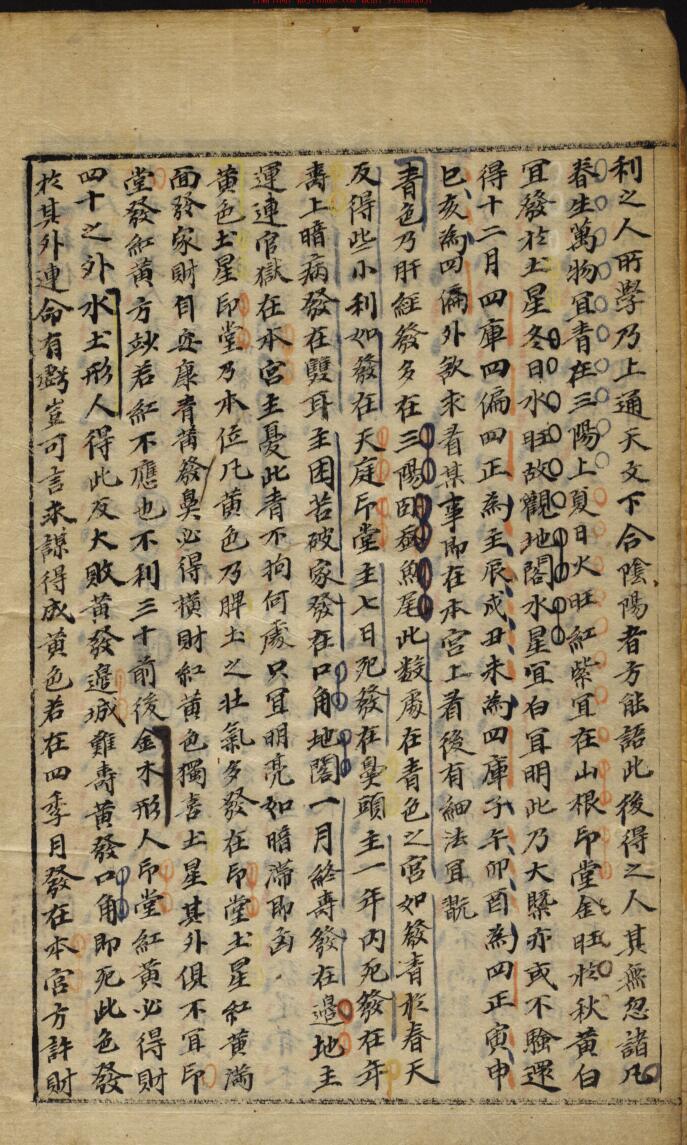 利之人所學乃上通天文下合陰陽者方能語此後得之人其無忽諸凡
春生萬物宜青在三陽上夏日火旺紅紫宜在山根印堂金旺於秋黄白
宜發於土星冬日水旺故觀地閣水星宜白宜明此乃大槩亦或不驗還
得十二月四庫四偏四正為主辰戌丑未為四庫子午卯酉為四正寅申
巳亥為四偏外欲求看某事即在本宮上看後有細法宜翫
青色乃肝經發多在三陽卧蚕魚尾此数處在青色之宮如發青於春天
反得些小利如發在天庭印堂主七日死發在鼻頭主一年内死發在年
壽上暗病發在雙耳主困苦破家發在口角地閣一月終壽發在邉地主
運連官獄在本宮主憂此青不拘何處只宜明亮如暗滯即凶
黄色土星印堂乃本位凡黄色乃脾土之壮氣多發在印堂土星紅黄滿
面發家財自安康青黄發鼻必得橫財紅黄色獨喜土星其外俱不宜印
堂發紅黄方妙若紅不應也不利三十前後金木形人印堂紅黄必得財
四十之外水土形人得此反大敗黄發邉城難壽黄發口角即死此色發
於其外連命有虧豈可言求謀得成黄色若在四季月發在本宮方許財